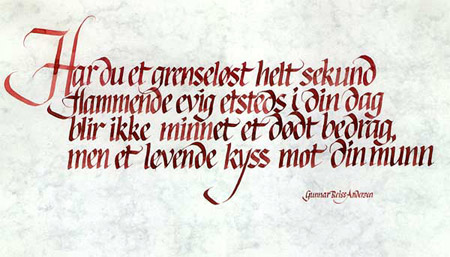 Har du et grenseløst helt sekund
flammende evig etsteds i din dag
blir ikke minnet et dødt bedrag,
men et levende kyss mot din munn
Gunnar Reiss-Andersen